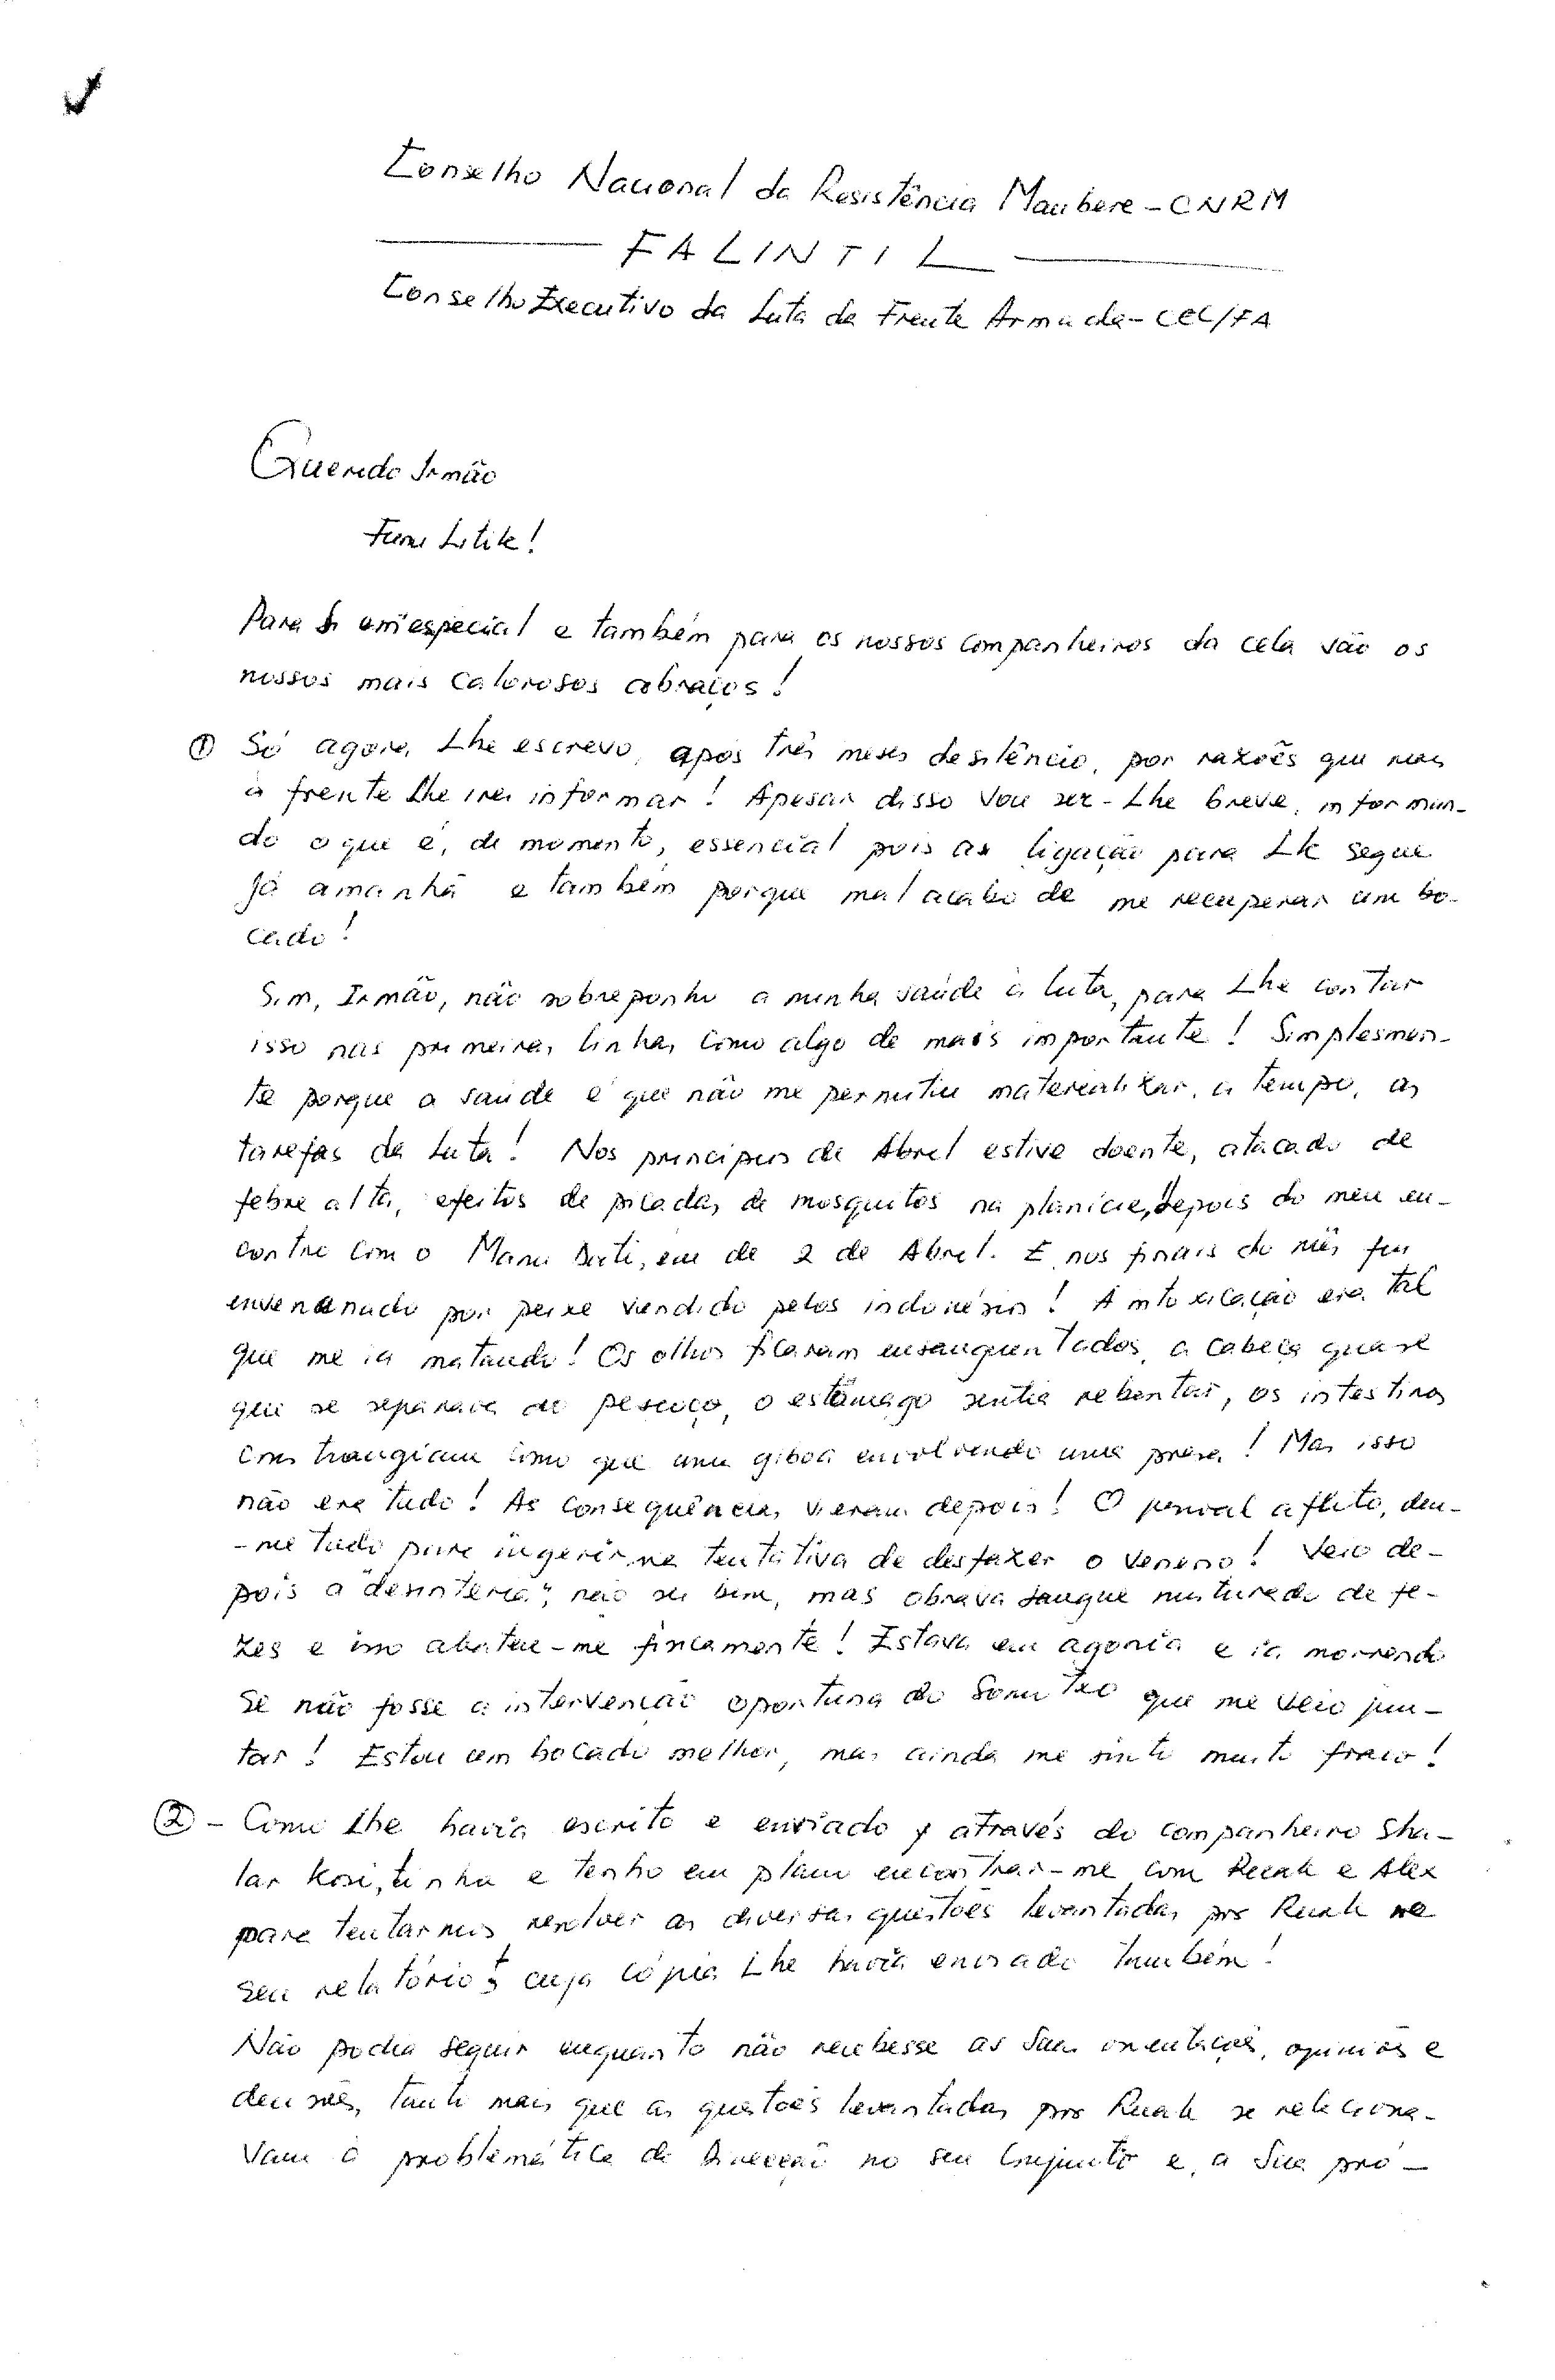 Conselho Nacional da Resistência Maubere - CNRM
FALINTIL
Conselho Executivo da Luta da Frente Armada - CEL/FA
Querido Irmão
Funu Litik!
Para Si em especial e também para os nossos companheiros da cela vão os
nossos mais calorosos abraços!
① Só agora Lhe escrevo, após três meses de silêncio, por razões que mais
à frente Lhe irei informar! Apesar disso vou ser-Lhe breve, informan-
do o que é, de momento, essencial pois as ligação para Lk segue
já amanhã e também porque mal acabo de me recuperar um bo-
cado!
Sim, Irmão, não sobreponho a minha saúde à luta, para Lhe contar
isso nas primeiras linhas como algo de mais importante! Simplesmen-
te porque a saúde é que não me permitiu materializar, a tempo, as
tarefas da Luta! Nos princípios de Abril estive doente, atacado de
febre alta, efeitos de picadas de mosquitos na planície, depois do meu en-
contro com o Manu em de 2 de Abril. E nos finais do mês fui
envenenado por peixe vendido pelos indonésios! A intoxicação era tal
que me ia matando! Os olhos ficaram ensanguentados, a cabeça quase
que se separava do pescoço, o estômago sentia rebentar, os intestinos
constrangiam como que uma giboa envolvendo uma presa! Mas isso
não era tudo! As consequências vieram depois! O pessoal aflito, deu-
-me tudo para ingerir na tentativa de desfazer o veneno! Veio de-
pois a "desinteria", não sei bem, mas obrava sangue misturado de fe-
zes e isso abateu-me fincamente! Estava em agonia e ia morrendo
se não fosse a intervenção oportuna do que me veio jun-
tar! Estou um bocado melhor, mas ainda me sinto muito fraco!
② - Como Lhe havia escrito e enviado através do companheiro Sha-
lar Kosi, tinha e tenho em plano encontrar-me com Ruak e Alex
para tentarmos resolver as diversas questões levantadas por Ruak no
seu relatório, cuja cópia Lhe havia enviado também!
Não podia seguir enquanto não recebesse as Suas orientações, opiniões e
decisões, tanto mais que as questões levantadas por Ruak se relaciona-
vam à problemática da Direcção no seu conjunto e, a Sua pró-